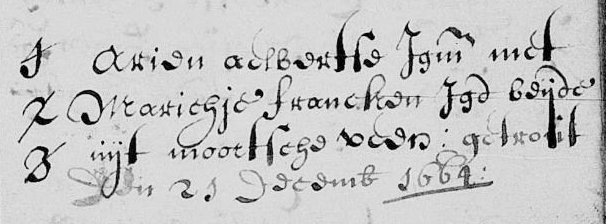 1 Arien aelbertse Jgm met
2 Marichje francken Jgd beijde
3 uijt moortsche veen: getrout
Den 21 Decemb 1664: